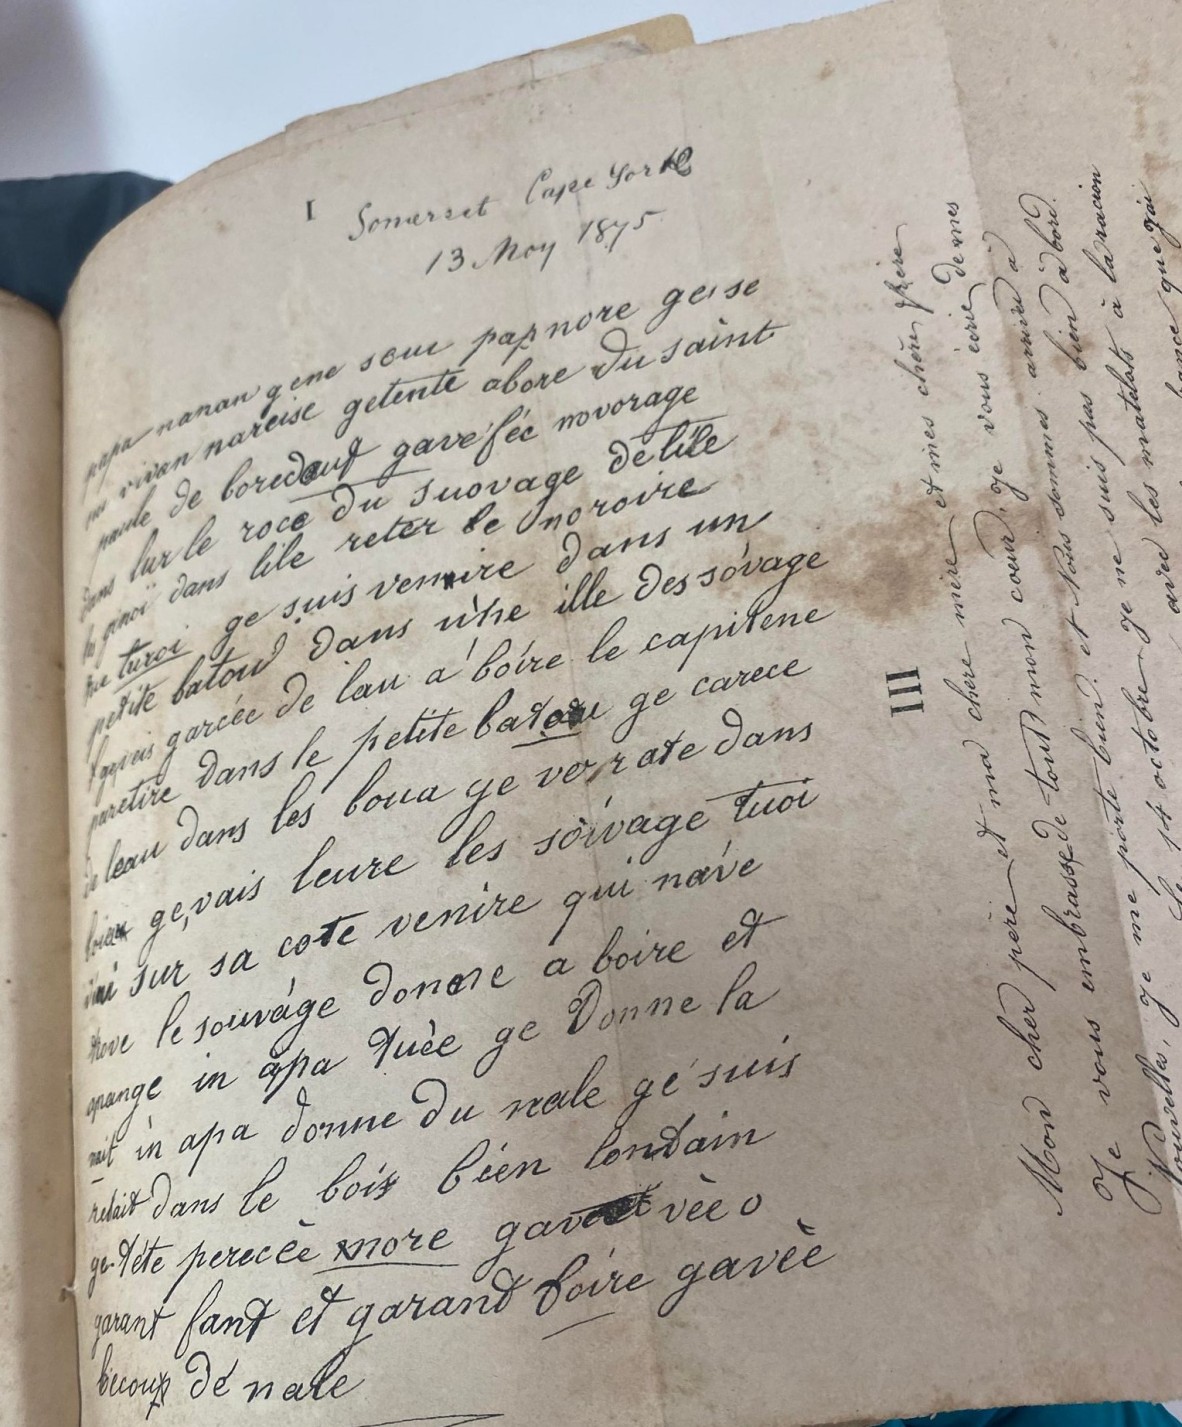 I
Somerset Cape York
13 May 1875
papa nanan gene seui papnore ge se
vivan narcise getente abore du saint
paule de boredauf gavefée novorage
dans lur le roce du suovage de lile
ginoï dans lile reter le noroire
turoi ge suis venire dans un
petite batou dans une ille des sovage
garcée de lau a boire le capitene
paretire dans le petite batau ge carece
leau dans les boua ge verrate dans
boiau ge vais leure les sóuvage tuoi
sur sa cote venire qui náve
trove le souváge donne a boire et
mange in apa tuèe ge Donne la
mit in apa donne du nale gé suis
retait dans le boix bien londain
ge téte perecèe more gavet vèe o
garant fant et garand boire gavèe
bécoup dé nale
III
Mon cher père et ma chère mère et mes chères frère
Je vous embrasse de tout mon coeur, je vous écrie de mes
Nouvelles, je me porte bien et Nous sommes arrivé à
le 14 octobre je ne suis pas bien à bord
avec les matelots à la racion
que j'ai